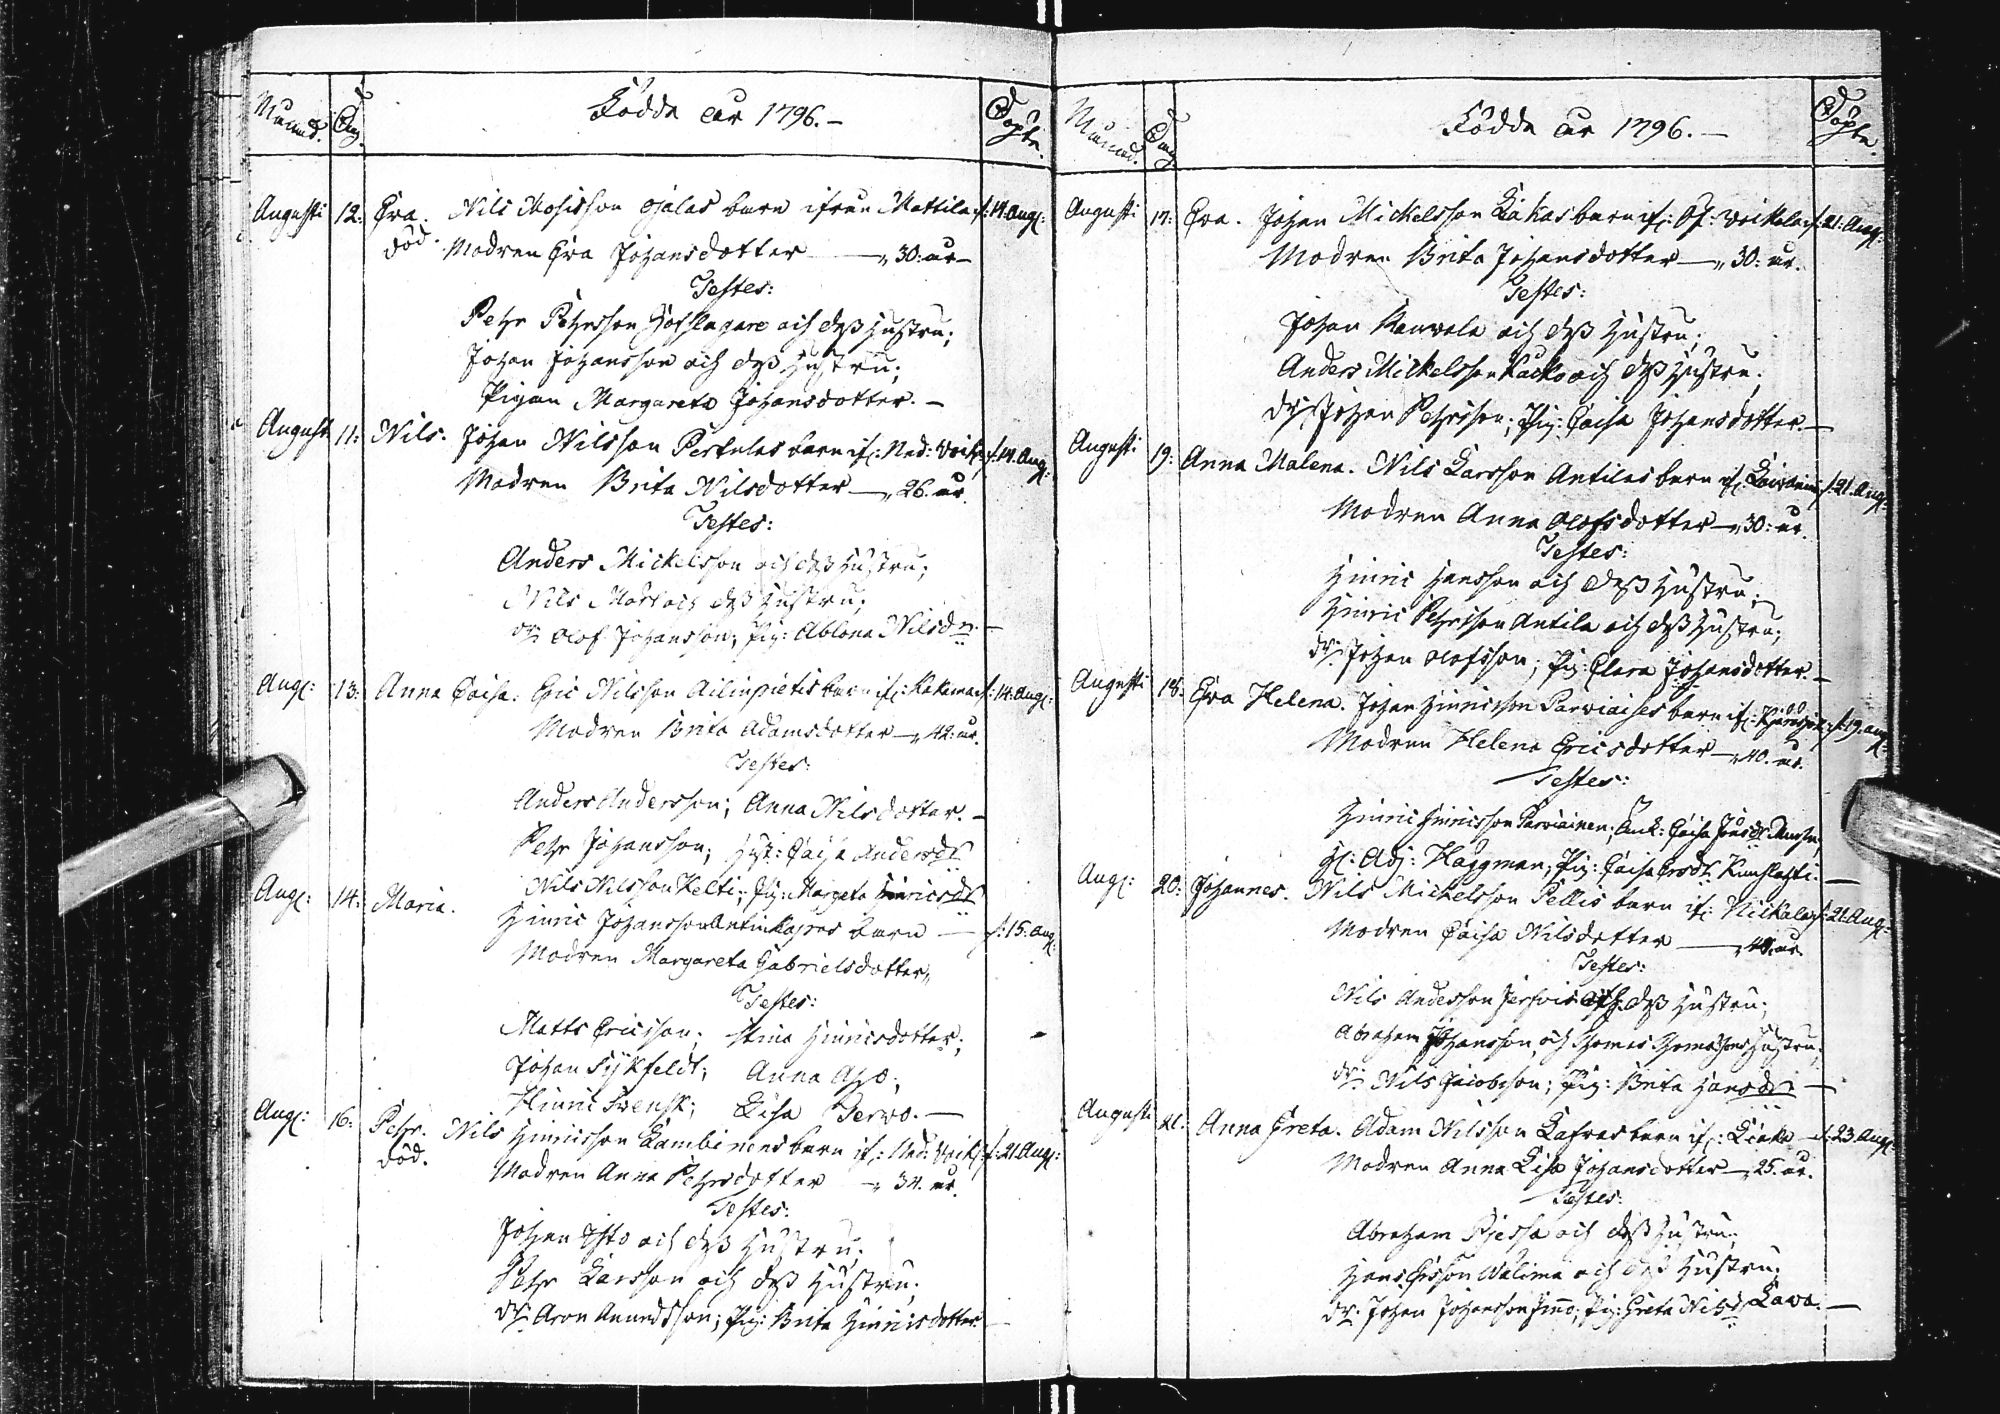 Månad. Dag. Födda år 1796.- Döpte.
Augusti 12: Eva. Nils Mosisson Ojalas barn ifrån Mattila d: 14. Aug:
död. Modren Eva Johansdotter — 30: år
Testes:
Pehr Pehrsson Hofslagare och dess hustru;
Johan Johansson och dess hustru;
Pigan Margareta Johansdotter. -
August 11: Nils. Johan Nilsson Perkulas barn if: Ned: Veik: d: 14. Aug:
Modren Brita Nilsdotter — 26. år.
Testes:
Anders Mickelsson och dess hustru;
Nils och dess hustru;
Dr: Olof Johansson; Pig: Ablona Nilsdr. -
Aug: 13: Anna Caisa. Eric Nilsson barn if: Kakama d: 14: Aug:
Modren Brita Adamsdotter — 42: år.
Testes:
Anders Andersson; Anna Nilsdotter. -
Pehr Johansson; Hust: Caisa Andersdr.
Nils Nilsson Kelti; Pig: Margeta Hinricsdr.
Aug: 14: Maria. Hinric Johansson barn — d: 15. Aug:
Modren Margareta Gabrielsdotter,
Testes:
Matts Ericsson; Stina Hinricsdotter;
Johan Sykfeldt; Anna
Hinric Svensk; Lisa Servo. —
Aug: 16: Pehr. Nils Hinricsson Lambinens barn if: Ned: Veik: d: 21. Aug:
död. Modren Anna Pehrsdotter — 34. år.
Testes:
Johan och dess hustru.
Pehr Larsson och dess hustru;
Dr: Aron Anundsson; Pig: Brita Hinricsdotter.
Månad. Dag. Födda år 1796. - Döpte.
Augusti 17: Eva. Johan Mickelsson Lakas barn if: Öf: Veikola d: 21: Aug:
Modren Brita Johansdotter — 30: år.
Testes:
Johan Kauvala och dess hustru;
Anders Mickelsson och dess hustru;
Dr: Johan Pehrsson; Pig: Caisa Johansdotter. —
Augusti 19: Anna Malena. Nils Larsson Antilas barn if: d: 21. Aug:
Modren Anna Olofsdotter — 30: år.
Testes:
Hinric Hansson och dess hustru;
Hinric Pehrsson Antila och dess hustru;
Dr: Johan Olofsson; Pig: Clara Johansdotter. -
Augusti 18: Eva Helena. Johan Hinricsson Parviaises barn if: d: 19. Aug:
Modren Helena Ericsdotter — 40. år.
Testes:
Hinric Hinricsson Parviainen; Enk: Caisa
H: Adj: Häggman; Pig: Caisa Ersdr. Kumslahti. —
Aug: 20: Johannes. Nils Mickelsson Pellis barn if: Nickala d: 21. Aug:
Modren Caisa Nilsdotter — år.
Testes:
Nils Andersson och dess hustru;
Abraham Johansson, och Thomas Thomassons hustru;
Dr: Nils Jacobsson; Pig: Brita Hansdr: —
Augusti 21. Anna Greta. Adam Nilsson Lafvas barn if: d: 23. Aug:
Modren Anna Lisa Johansdotter — 25. år.
Testes:
Abraham och dess hustru;
Hans Ersson Välimä och dess hustru.
Dr. Johan Johansson; Pig: Greta Nilsdr Lavo. —